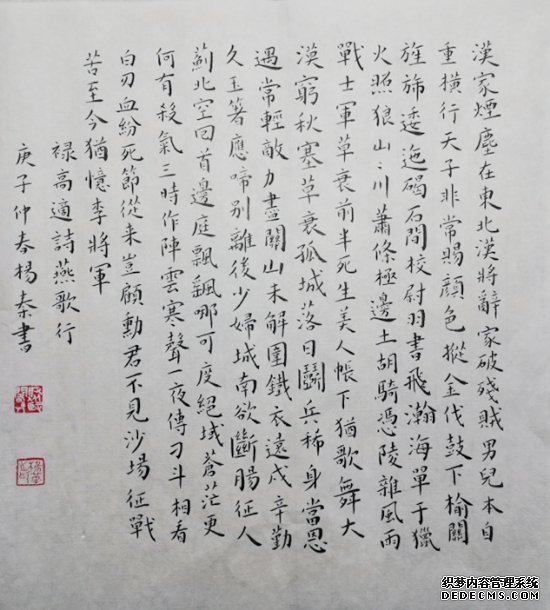 漢家煙塵在東北漢將辭家破殘賊男兒本自
重橫行天子非常賜顏色摐金伐鼓下榆關
旌旆逶迤碣石間校尉羽書飛瀚海單于獵
火照狼山〻川蕭條極邊土胡騎憑陵雜風雨
戰士軍草衰前半死生美人帳下猶歌舞大
漠窮秋塞草衰孤城落日鬭兵稀身當恩
遇常輕敵力盡關山未解圍鐵衣遠戍辛勤
久玉箸應啼別離後少婦城南欲斷腸征人
薊北空回首邊庭飄颻哪可度絕域蒼茫更
何有殺氣三時作陣雲寒聲一夜傳刁斗相看
白刃血紛死節從来豈顧勳君不見沙場征戰
苦至今猶憶李將軍
祿高適詩燕歌行
庚子仲春楊秦書
织梦内容管理系统
DEDECMS.COM